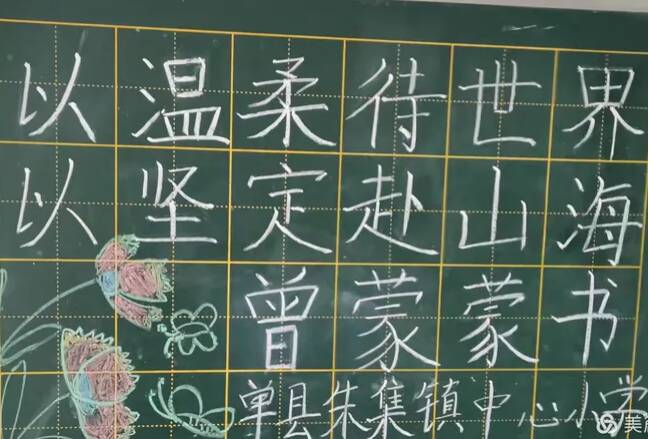 以温柔待世界
以坚定赴山海
曾蒙蒙书
单县朱集镇中心小学